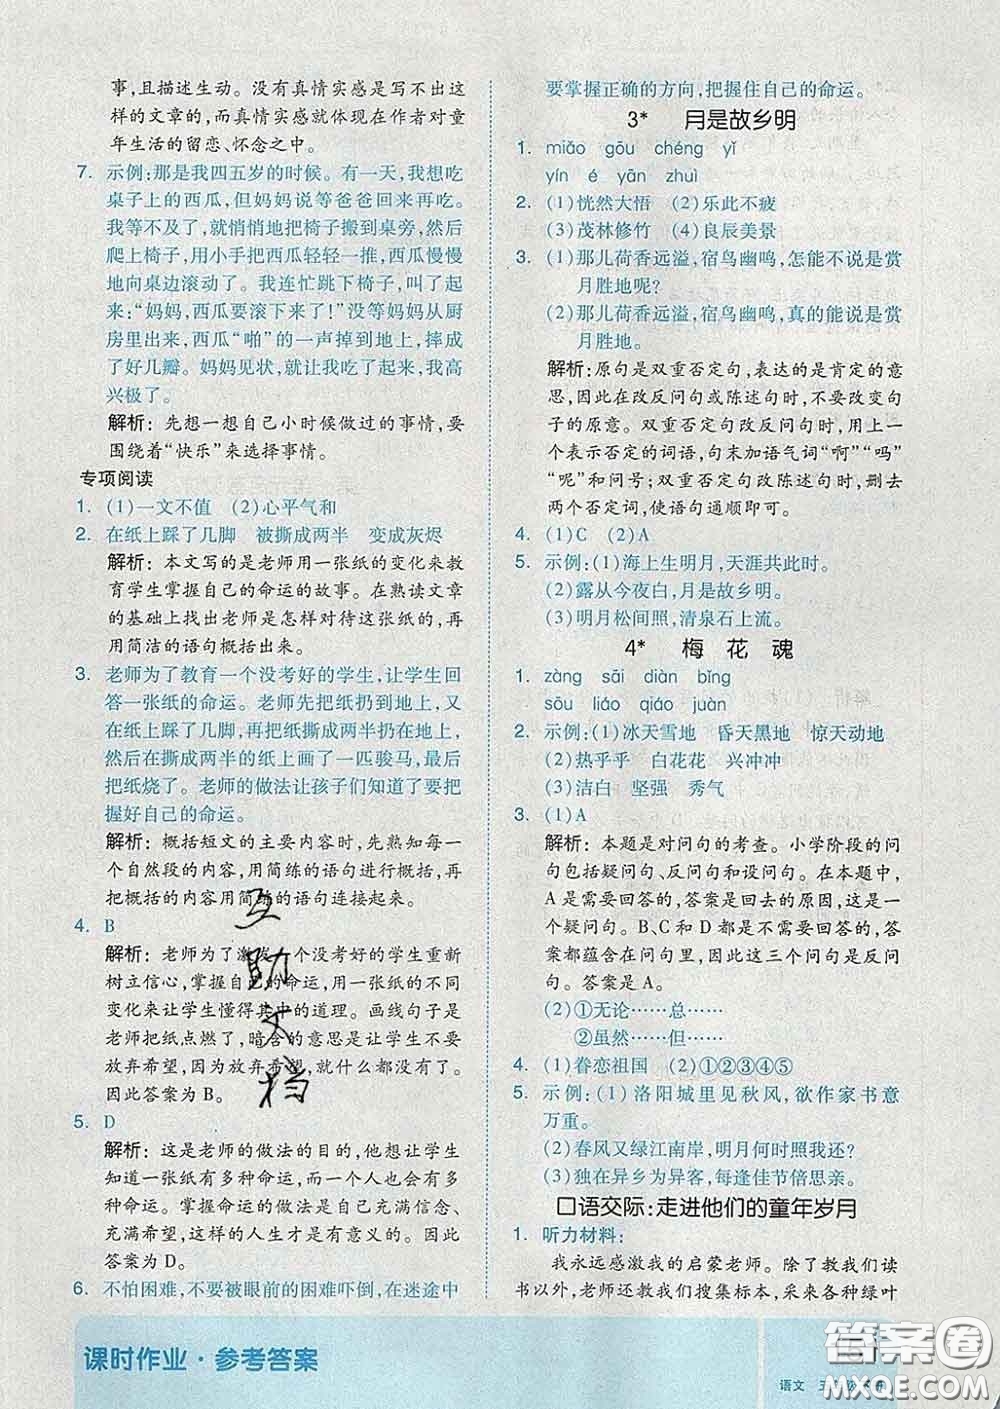 事,且描述生动。没有真情实感是写不出这
样的文章的,而真情实感就体现在作者对童
年生活的留恋、怀念之中。
7. 示例:那是我四五岁的时候。有一天,我想吃
桌子上的西瓜,但妈妈说等爸爸回来再吃。
我等不及了,就悄悄地把椅子搬到桌旁,然后
爬上椅子,用小手把西瓜轻轻一推,西瓜慢慢
地向桌边滚动了。我连忙跳下椅子,叫了起
来:“妈妈,西瓜要滚下来了!”没等妈妈从厨
房里出来,西瓜“啪”的一声掉到地上,摔成
了好几瓣。妈妈见状,就让我吃了起来,我高
兴极了。
解析:先想一想自己小时候做过的事情,要
围绕着“快乐”来选择事情。
专项阅读
1. (1)一文不值 (2)心平气和
2. 在纸上踩了几脚 被撕成两半 变成灰烬
解析:本文写的是老师用一张纸的变化来教
育学生掌握自己的命运的故事。在熟读文章
的基础上找出老师是怎样对待这张纸的,再
用简洁的语句概括出来。
3. 老师为了教育一个没考好的学生,让学生回
答一张纸的命运。老师先把纸扔到地上,又
在纸上踩了几脚,再把纸撕成两半扔在地上,
然后在撕成两半的纸上画了一匹骏马,最后
把纸烧了。老师的做法让孩子们知道了要把
握好自己的命运。
解析:概括短文的主要内容时,先熟知每一
个自然段的内容,用简练的语句进行概括,再
把概括的内容用简练的语句连接起来。
4. B
解析:老师为了激发一个没考好的学生重新
树立信心,掌握自己的命运,用一张纸的不同
变化来让学生懂得其中的道理。画线句子是
老师把纸点燃了,暗含的意思是让学生不要
放弃希望,因为放弃希望,就什么都没有了。
因此答案为 B。
5. D
解析:这是老师的做法的目的,他想让学生
知道一张纸有多种命运,一个人的人生会有
多种命运。掌握命运的做法是自己充满信念、
充满希望,这样的人生才是有意义的。因此
答案为 D。
6. 不怕困难,不要被眼前的困难吓倒,在迷途中
互助文档
要掌握正确的方向,把握住自己的命运。
3* 月是故乡明
1. miǎo gōu chéng yǐ
yín é yān zhuì
2. (1)恍然大悟 (2)乐此不疲
(3)茂林修竹 (4)良辰美景
3. (1)那儿荷香远溢,宿鸟幽鸣,怎能不说是赏
月胜地呢?
(2)那儿荷香远溢,宿鸟幽鸣,真的能说是赏
月胜地。
解析:原句是双重否定句,表达的是肯定的意
思,因此在改反问句或陈述句时,不要改变句
子的原意。双重否定句改反问句时,用上一
个表示否定的词语,句末加语气词“啊”“吗”
“呢”和问号;双重否定句改陈述句时,删去
两个否定词,使语句通顺即可。
4. (1)C (2)A
5. 示例:(1)海上生明月,天涯共此时。
(2)露从今夜白,月是故乡明。
(3)明月松间照,清泉石上流。
4* 梅花魂
1. zàng sāi diàn bǐng
sōu liáo qiáo juàn
2. 示例:(1)冰天雪地 昏天黑地 惊天动地
(2)热乎乎 白花花 兴冲冲
(3)洁白 坚强 秀气
3. (1)A
解析:本题是对问句的考查。小学阶段的问
句包括疑问句、反问句和设问句。在本题中,
A 是需要回答的,答案是回去的原因,这是
一个疑问句。B、C和 D 都是不需要回答的,答
案都蕴含在问句里,因此这三个问句是反问
句。答案是 A。
(2)①无论……总……
②虽然……但……
4. (1)眷恋祖国 (2)①②③④⑤
5. 示例:(1)洛阳城里见秋风,欲作家书意
万重。
(2)春风又绿江南岸,明月何时照我还?
(3)独在异乡为异客,每逢佳节倍思亲。
口语交际:走进他们的童年岁月
1. 听力材料:
我永远感激我的启蒙老师。除了教我们读
书以外,老师还教我们搜集标本,采来各种绿叶
课时作业·参考答案
语文 五
答案圈
MXQE.COM